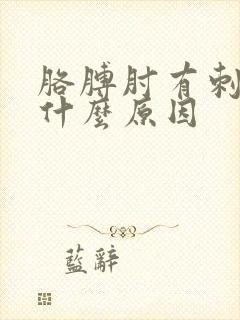 胳膊肘有刺
什麼原因
藍辭